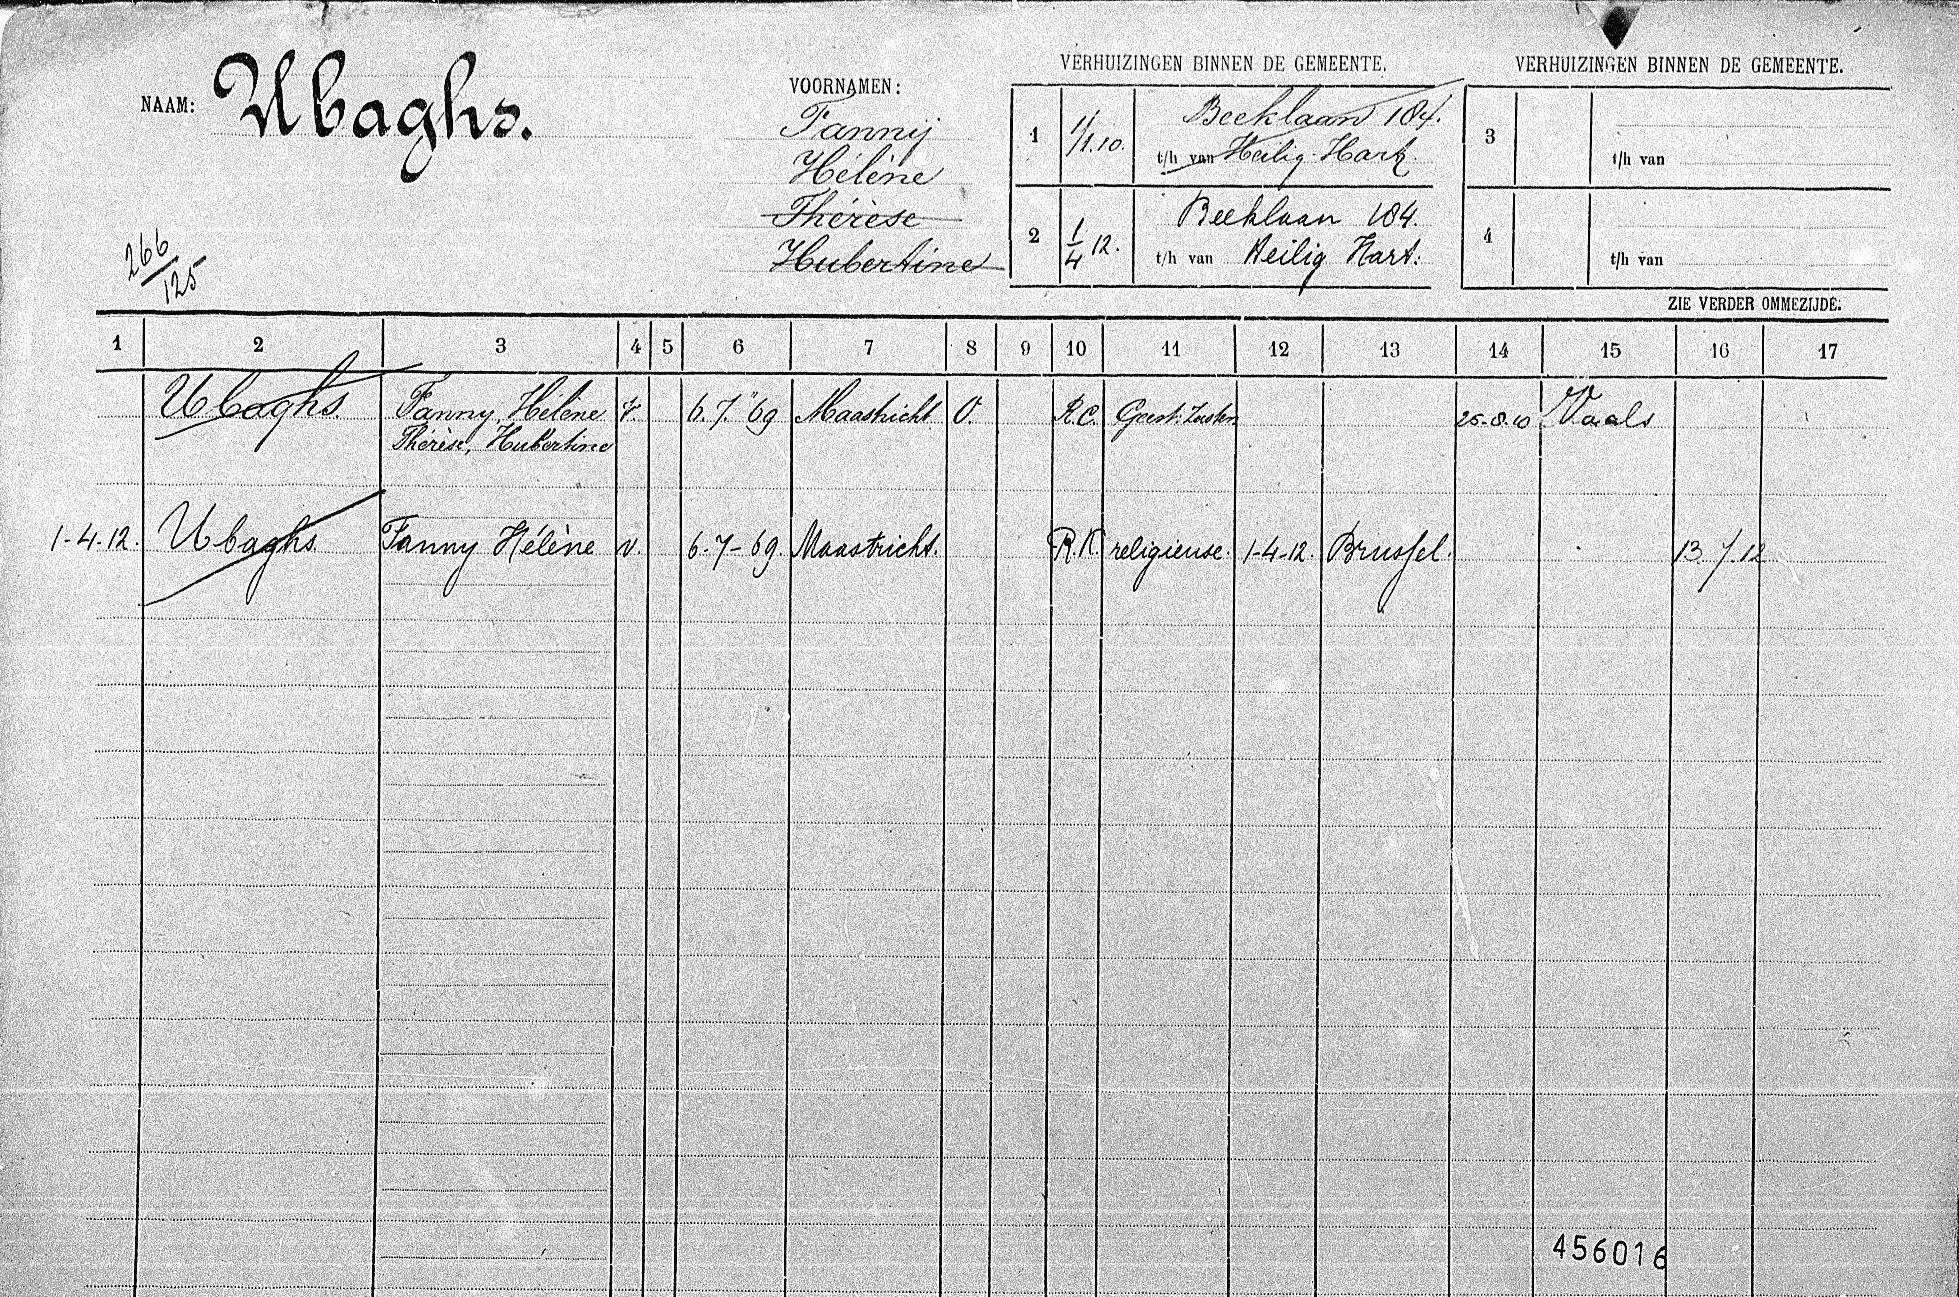 NAAM: Ubaghs.
VOORNAMEN:
Fannij
Hélène
Thérèse
Hubertine
266/125
VERHUIZINGEN BINNEN DE GEMEENTE.
1 1/1.10. Beeklaan 184.
t/h van Heilig-Hart.
2 1/4 12. Beeklaan 184.
t/h van Heilig Hart.
VERHUIZINGEN BINNEN DE GEMEENTE.
3
t/h van
4
t/h van
ZIE VERDER OMMEZIJDE.
1 2 3 4 5 6 7 8 9 10 11 12 13 14 15 16 17
Ubaghs. Fanny, Hélène V. 6.7."69 Maastricht O. R.C. Geest. Zuster 25-8-10 Vaals
Thérèse, Hubertine
1-4-12. Ubaghs Fanny Hélène v. 6-7-69. Maastricht. R.K. religieuse. 1-4-12. Brussel. 13.7.12
456016